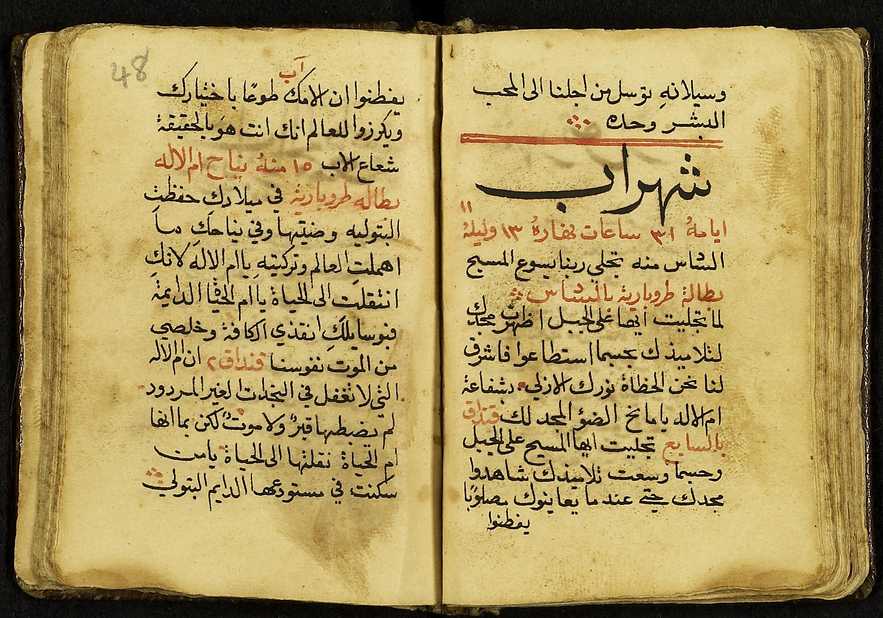 وسيلانه توسل من اجلنا الى المحب
البشر وحده
شهر اب
ايامهُ ٣١ ساعات نهاره ١٣ وليلهُ ١١
السادس منه تجلي ربنا يسوع المسيح
بطالة طروبارية بالسادس
لما تجليت ايها على الجبل اظهرت مجدك
لتلاميذك بحسبما استطاعوا فاشرق
لنا نحن الخطاة نورك الازلي بشفاعة
ام الاله يا مانح الضو المجد لك قنداق
بالسابع تجليت ايها المسيح على الجبل
وحسبما وسعت تلاميذك شاهدوا
مجدك حتي عند ما يعاينوك مصلوبًا
يفطنوا
48
آب
يفطنوا ان الامك طوعًا باختيارك
ويكرزوا للعالم انك انت هو بالحقيقة
شعاع الاب ١٥ منهُ نياح ام الاله
بطاله طروبارية في ميلادكِ حفظتِ
البتوليه وضيتها وفي نياحكِ ما
اهملتِ العالم وتركتيهِ يا ام الاله لانكِ
انتقلتِ الى الحياة يا ام الحياة الدايمة
فبوسايلكِ انقذي الكافة وخلصي
من الموت نفوسنا قنداق ٢ ان ام الاله
التي لا تغفل في النجدات لغير المردود
لم يضبطها قبرٌ ولا موتٌ لكن بما انها
ام الحياة نقلها الى الحياة يا من
سكنت في مستودعها الدايم البتولي